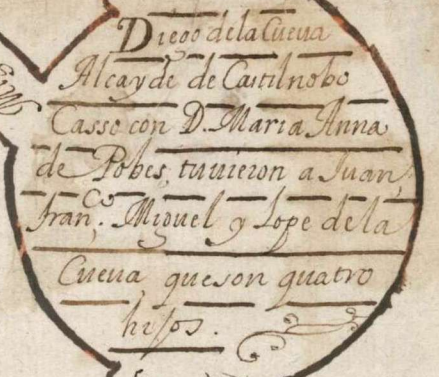 Diego dela Cueva
Alcayde de Castilnobo
Casso con D. Maria Anna
de Pobes, tuuieron a Juan,
Fran.co Miguel y Lope de la
Cueva, que son quatro
hijos.